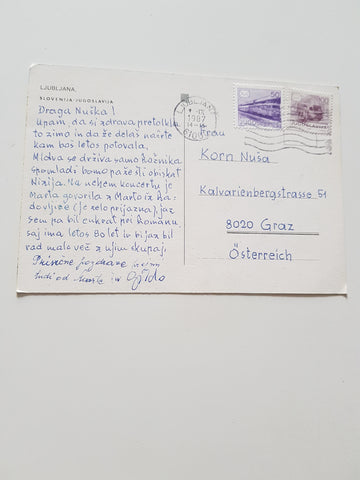 LJUBLJANA
SLOVENIJA-JUGOSLAVIJA
Draga Nuška!
upam, da si zdrava pretolkla
to zimo in da že delaš načrte
kam boš letos potovala.
Midva se drživa samo Rožnika
spomladi bomo pa že šli obiskat
Nizija. Na nekem koncertu je
Marta govorila z Marto iz Ra-
dovljice (je zelo prijazna), jaz
sem pa bil enkrat pri Romanu
saj ima letos 80 let in bi jaz bil
rad malo več z njim skupaj.
Prisrčne pozdrave
tudi od Marte in
LJUBLJANA
1987
50
Frau
Korn Nuša
Kalvarienbergstrasse 51
8020 Graz
Österreich